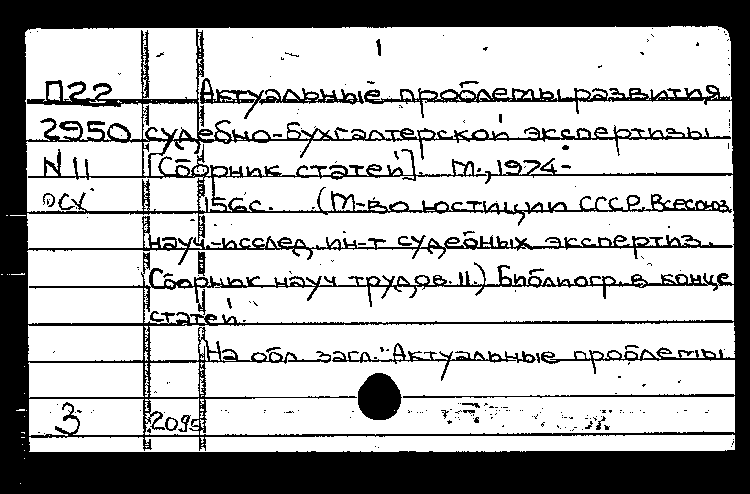 1
П22 Актуальные проблемы развития
2950 судебно-бухгалтерской экспертизы
N 11 [Сборник статей]. М., 1974-
156с. (М-во юстиции СССР. Всесоюз.
науч.-исслед. ин-т судебных экспертиз.
Сборник науч трудов. 11.) Библиогр. в конце
статей.
На обл. загл.: "Актуальные проблемы
3 2095